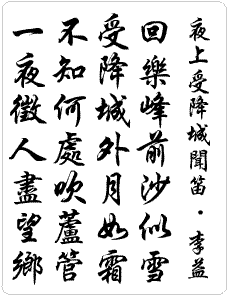 夜上受降城聞笛・李益
回樂峰前沙似雪
受降城外月如霜
不知何處吹蘆管
一夜徵人盡望鄉